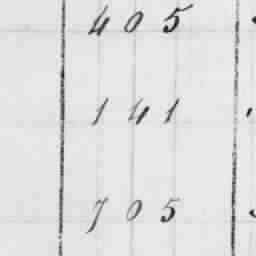 405
141
705